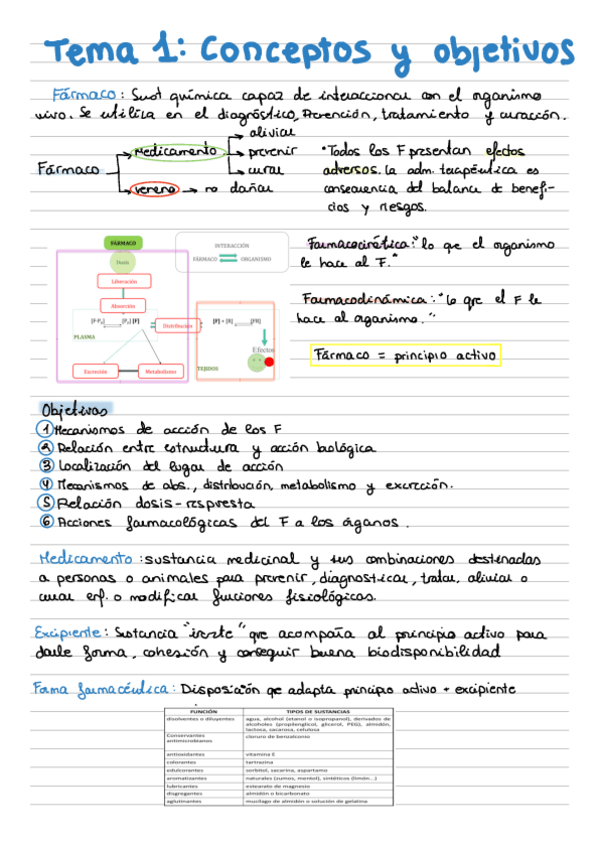 Tema 1: Conceptos y objetivos
Fármaco: Sust química capaz de interaccionar con el organismo
vivo. Se utiliza en el diagnóstico, Prevención, tratamiento y curación.
Fármaco
Medicamento
aliviar
prevenir
curar
veneno → no dañar
• Todos los F presentan efectos
adversos. La adm. terapéutica es
consecuencia del balance de benefi-
cios y riesgos.
FÁRMACO
Dosis
Liberación
Absorción
[F] 
PLASMA
Distribución
Excreción
Metabolismo
INTERACCIÓN
FÁRMACO ORGANISMO
[F] + [R] [FR]
Efectos
TEJIDOS
Farmacocinética: "lo que el organismo
le hace al F."
Farmacodinámica: "lo que el F le
hace al organismo."
Fármaco = principio activo
Objetivos
1 Mecanismos de acción de los F
2 Relación entre estructura y acción biológica
3 Localización del lugar de acción
4 Mecanismos de abs., distribución, metabolismo y excreción.
5 Relación dosis-respuesta
6 Acciones farmacológicas del F a los órganos.
Medicamento: sustancia medicinal y sus combinaciones destinadas
a personas o animales para prevenir, diagnosticar, tratar, aliviar o
curar enf. o modificar funciones fisiológicas.
Excipiente: Sustancia "inerte" que acompaña al principio activo para
darle forma, cohesión y conseguir buena biodisponibilidad
Forma farmacéutica: Disposición que adapta principio activo + excipiente
FUNCIÓN TIPOS DE SUSTANCIAS
disolventes o diluyentes agua, alcohol (etanol o isopropanol), derivados de
alcoholes (propilenglicol, glicerol, PEG), almidón,
lactosa, sacarosa, celulosa
Conservantes cloruro de benzalconio
antimicrobianos
antioxidantes vitamina E
colorantes tartracina
edulcorantes sorbitol, sacarina, aspartamo
aromatizantes naturales (zumos, mentol), sintéticos (limón...)
lubricantes estearato de magnesio
disgregantes almidón o bicarbonato
aglutinantes mucílago de almidón o solución de gelatina